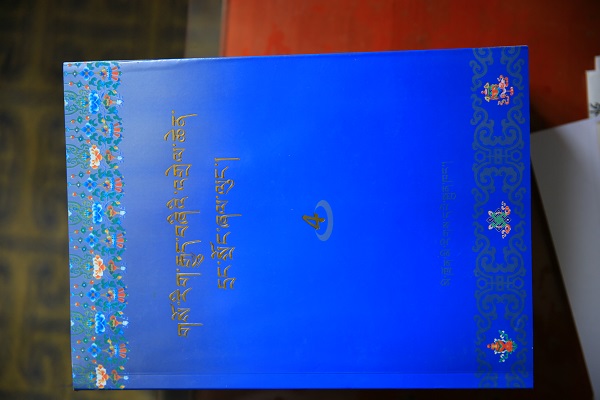 གསོ་རིག་རྒྱུད་བཞིའི་འགྲེལ་ཆེན་
དྲང་སྲོང་ཞལ་ལུང་།
4